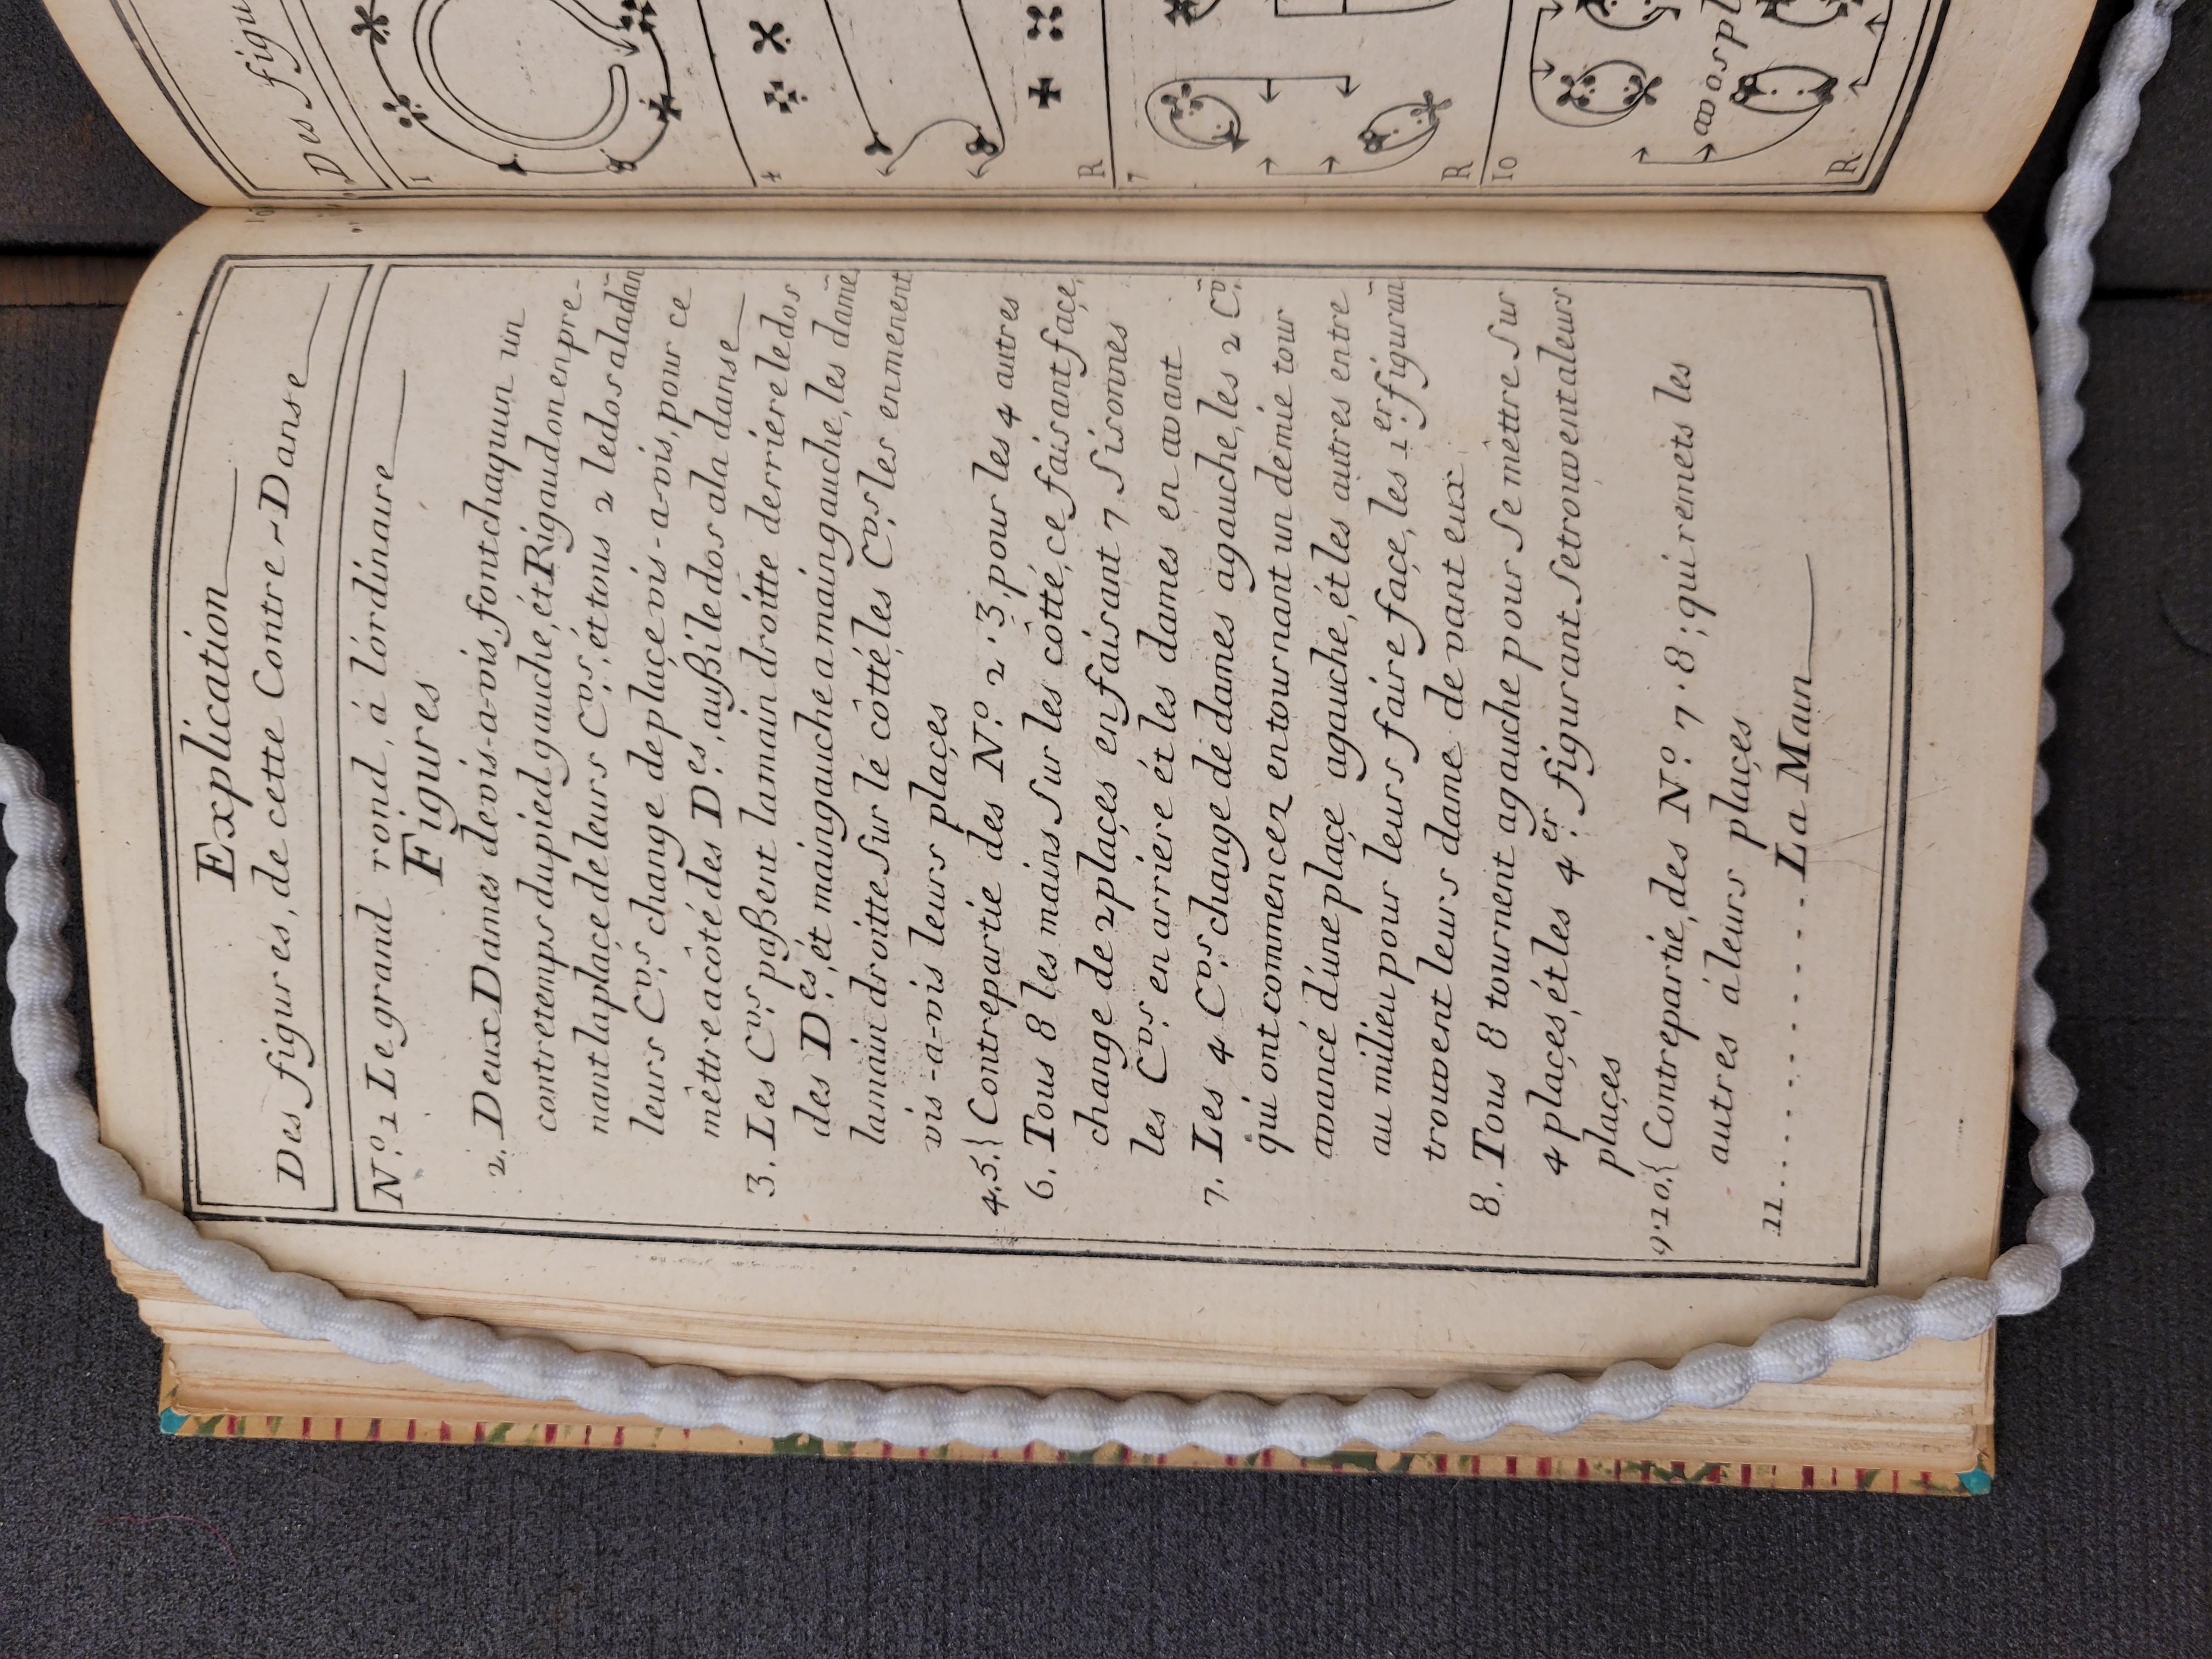 Explication
Des figures, de cette Contre-Danse
N.º 1 Le grand rond, á lórdinaire
Figures
2. Deux Dames devis-a-vis, font chaquun un
contretemps du pied gauche, ét Rigaudon en pre-
nant la plaçe de leurs C.vrs, ét tous 2 le dos a la dan
leurs C.vrs change de plaçe vis-a-vis, pour ce
mêttre a côté des D.es, außi le dos a la danse
3. Les C.vrs paßent la main droitte derriére le dos
des D.és, ét main gauche a main gauche, les damẽ
la main droitte sur le côtté, les C.vrs les enmenent
vis-a-vis leurs plaçes
4.5.{ Contrepartie des N.º 2.3, pour les 4 autres
6. Tous 8 les mains sur les côtté, ce faisant façe,
change de 2 plaçes en faisant 7 Sisonnes
les C.vrs en arriére ét les dames en avant
7. Les 4 C.vrs change de dames a gauche, les 2 C.vr
qui ont commencez en tournant un demie tour
avancé d'une plaçe a gauche, ét les autres entre
au milieu pour leurs faire façe, les 1.er figuran
trouvent leurs dame devant eux
8. Tous 8 tournent a gauche pour Se mêttre Sur
4 plaçes, ét les 4 .er figurant Se trouvent a leurs
plaçes
9.10.{ Contrepartie, des N.º 7.8; qui remets les
autres á leurs plaçes
11 . . . . . . . . . La Main
Des figu
1
4
R
7
R
10
R